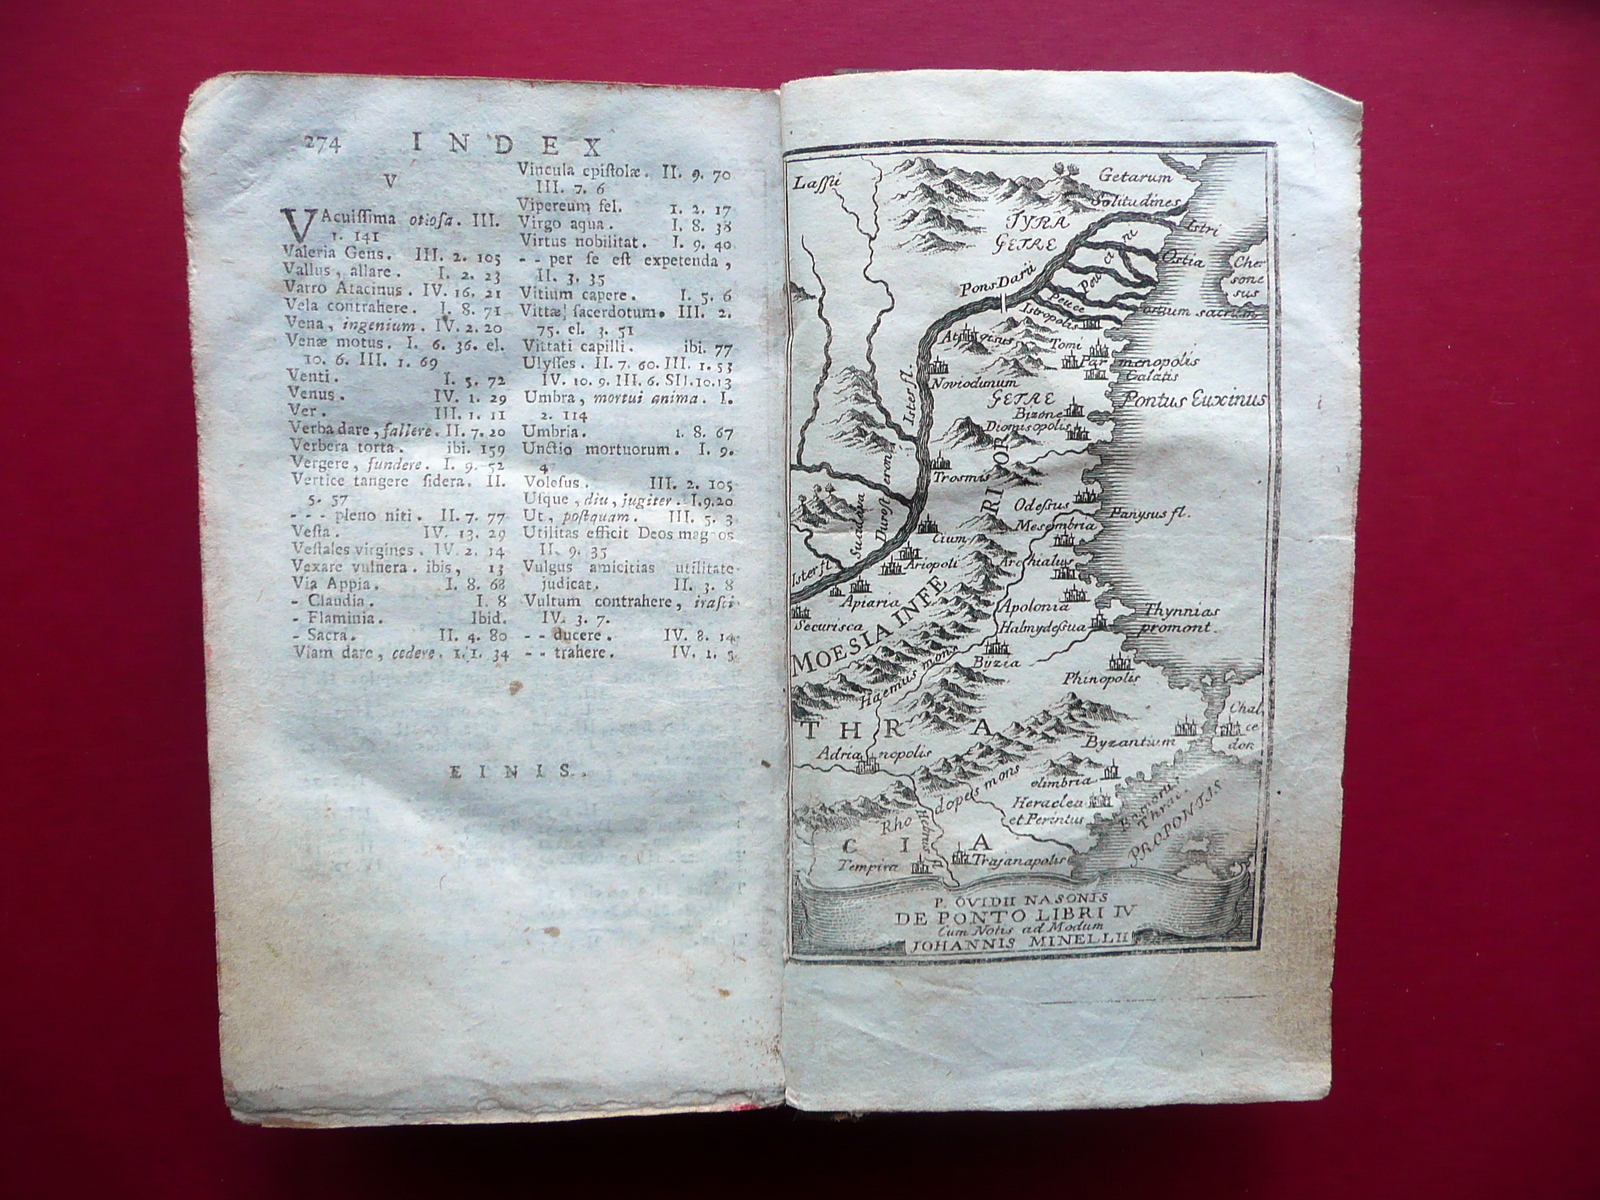 274 INDEX
V
VAcuissima otiosa. III.
1. 141
Valeria Gens. III. 2. 105
Vallus, allare. I. 2. 23
Varro Atacinus. IV. 16. 21
Vela contrahere. I. 8. 71
Vena, ingenium. IV. 2. 20
Venæ motus. I. 6. 36. el.
10. 6. III. 1. 69
Venti. I. 5. 72
Venus. IV. 1. 29
Ver. III. 1. 11
Verba dare, fallere. II. 7. 20
Verbera torta. ibi. 159
Vergere, fundere. I. 9. 52
Vertice tangere sidera. II.
5. 57
- - - pleno niti. II. 7. 77
Vesta. IV. 13. 29
Vestales virgines. IV. 2. 14
Vexare vulnera. ibis, 13
Via Appia. I. 8. 68
- Claudia. I. 8
- Flaminia. Ibid.
- Sacra. II. 4. 80
Viam dare, cedere. I. 1. 34
Vincula epistolæ. II. 9. 70
III. 7. 6
Vipereum fel. I. 2. 17
Virgo aqua. I. 8. 38
Virtus nobilitat. I. 9. 40
- - per se est expetenda,
II. 3. 35
Vitium capere. I. 5. 6
Vittæ sacerdotum. III. 2.
75. el. 3. 51
Vittati capilli. ibi. 77
Ulysses. II. 7. 60. III. 1. 53
IV. 10. 9. III. 6. SII. 10. 13
Umbra, mortui anima. I.
2. 114
Umbria. 1. 8. 67
Unctio mortuorum. I. 9.
4
Volesus. III. 2. 105
Usque, diu, jugiter. I. 9. 20
Ut, postquam. III. 5. 3
Utilitas efficit Deos magnos
II. 9. 35
Vulgus amicitias utilitate
judicat. II. 3. 8
Vultum contrahere, irasci
IV. 3. 7.
- - ducere. IV. 8. 14
- - trahere. IV. 1. 5
FINIS.
Lassii
Getarum
Solitudines
TYRA
GETAE
Istri
Ostia
Cher
sone
sus
Pons Darii
Peuce
Istropolis
ostium sacrum
Tomi
Parthenopolis
Galatis
Noviodunum
GETAE
Pontus Euxinus
Bizone
Dionisopolis
Ister fl.
Trosmis
RIOR
Odessus
Mesembria
Panysus fl.
Sucidava
Cium
Ister fl
Axiopoli
Archialus
Apiaria
Securisca
Apolonia
Thynnias
promont.
Halmydessua
MOESIA INFE
Haemus mons
Byzia
Phinopolis
THRA
Chal
ce
don
Byzantium
Adrianopolis
elimbria
Rhodopeus mons
Heraclea
et Perintus
Hebrus fl.
PROPONTIS
CIA
Tempira
Trajanapolis
P. OVIDII NASONIS
DE PONTO LIBRI IV
Cum Notis ad Modum
JOHANNIS MINELLII